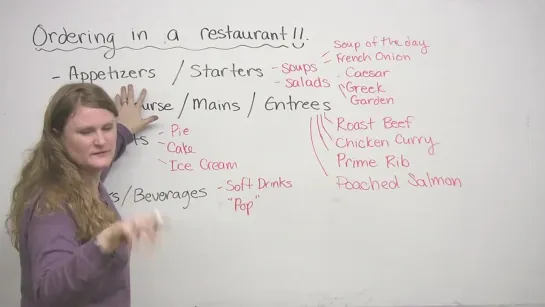 Ordering in a restaurant!!.
- Appetizers / Starters - soups - Soup of the day
French Onion
- salads - Caesar
Greek
Garden
/ Mains / Entrees
Roast Beef
Chicken Curry
Prime Rib
Poached Salmon
- Pie
- Cake
- Ice Cream
/ Beverages - Soft Drinks
"Pop"